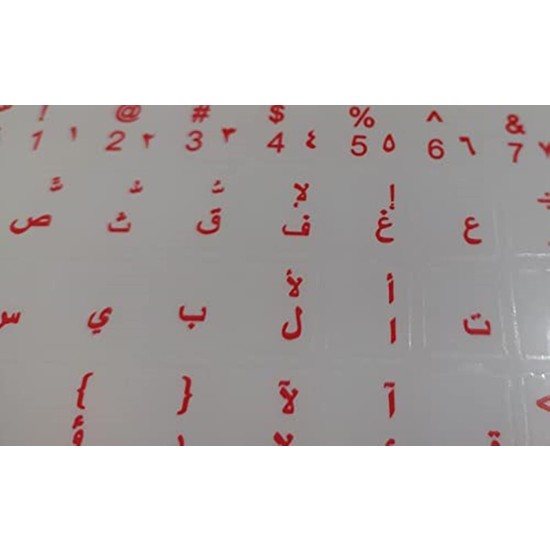 ! @ # $ % ^ &
1 ١ 2 ٢ 3 ٣ 4 ٤ 5 ٥ 6 ٦ 7 ٧
َ ً ُ لإ إ
ص ث ق ف غ ع
لأ أ
س ي ب ل ا ت
{ } لآ آ